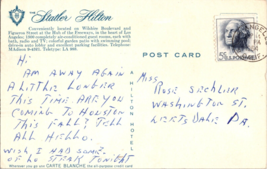 THE Statler Hilton
Conveniently located on Wilshire Boulevard and
Figueroa Street at the Hub of the Freeways, in the heart of Los
Angeles. 1300 completely air-conditioned guest rooms, each with
bath, radio and TV; colorful garden patio with swimming pool;
private auto lobby and excellent parking facilities. Telephone
MAdison 9-4321. Teletype LA 800.
POST CARD
Hi-
AM AWAY AGAIN
A LITTLE LONGER
THIS TIME ARE YOU
COMING TO HOUSTON
THIS FALL? TELL
ALL HELLO.
WISH I HAD SOME
OF STEAK TONIGHT
MISS
ROSE SECHLER
WASHINGTON ST.
LEETSDALE PA.
A HILTON HOTEL
Wherever you go use CARTE BLANCHE the all purpose credit card